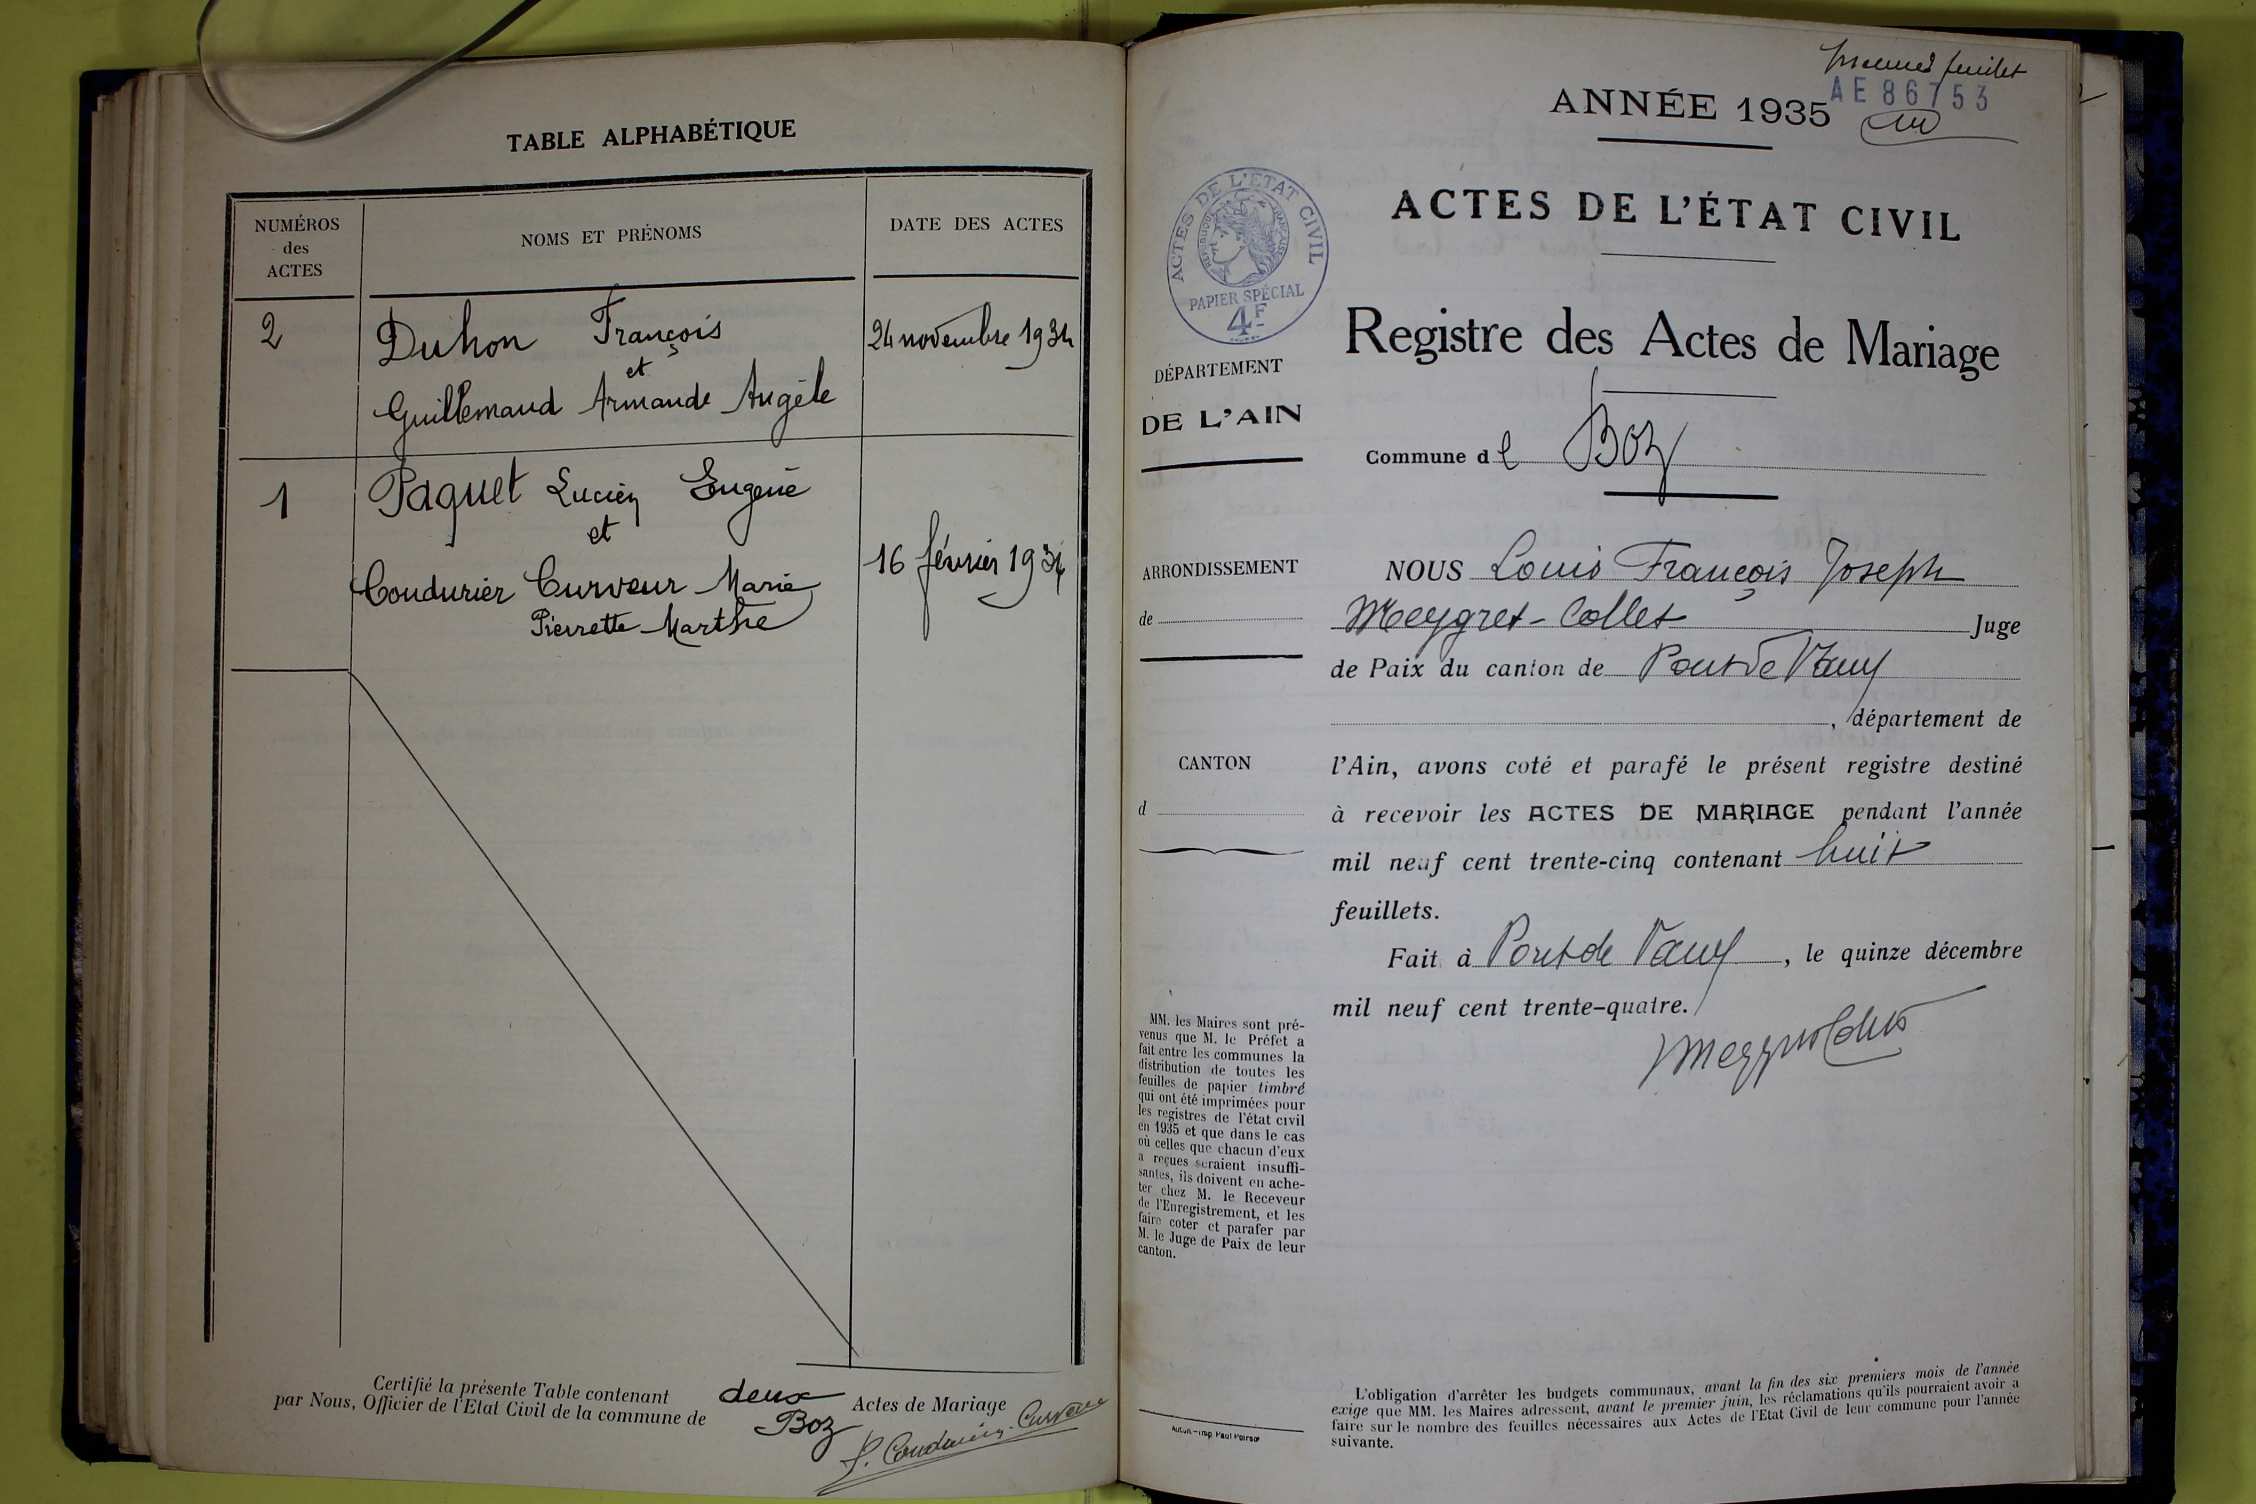 TABLE ALPHABÉTIQUE
NUMÉROS
des
ACTES
NOMS ET PRÉNOMS
DATE DES ACTES
2
Duhon François
et
Guillemaud Armande Angèle
24 novembre 1934
1
Paquet Lucien Eugène
et
Coudurier Curveur Marie
Pierrette Marthe
16 février 1934
Certifié la présente Table contenant deux Actes de Mariage
par Nous, Officier de l'Etat Civil de la commune de Boz
Coudurier-Curveur
feuillet
AE 86753
ANNÉE 1935
ACTES DE L'ÉTAT CIVIL
Registre des Actes de Mariage
Commune de Boz
ACTES DE L'ETAT CIVIL
REPUBLIQUE FRANÇAISE
PAPIER SPÉCIAL
4F
DÉPARTEMENT
DE L'AIN
ARRONDISSEMENT
de
CANTON
d
NOUS Louis François Joseph
Meygret-Collet Juge
de Paix du canton de Pont de Vaux
, département de
l'Ain, avons coté et parafé le présent registre destiné
à recevoir les ACTES DE MARIAGE pendant l'année
mil neuf cent trente-cinq contenant huit
feuillets.
Fait à Pont de Vaux, le quinze décembre
mil neuf cent trente-quatre.
MM. les Maires sont pré-
venus que M. le Préfet a
fait entre les communes la
distribution de toutes les
feuilles de papier timbré
qui ont été imprimées pour
les registres de l'état civil
en 1935 et que dans le cas
où celles que chacun d'eux
a reçues seraient insuffi-
santes, ils doivent en ache-
ter chez M. le Receveur
de l'Enregistrement, et les
faire coter et parafer par
M. le Juge de Paix de leur
canton.
L'obligation d'arrêter les budgets communaux, avant la fin des six premiers mois de l'année
exige que MM. les Maires adressent, avant le premier juin, les réclamations qu'ils pourraient avoir a
faire sur le nombre des feuilles nécessaires aux Actes de l'Etat Civil de leur commune pour l'année
suivante.